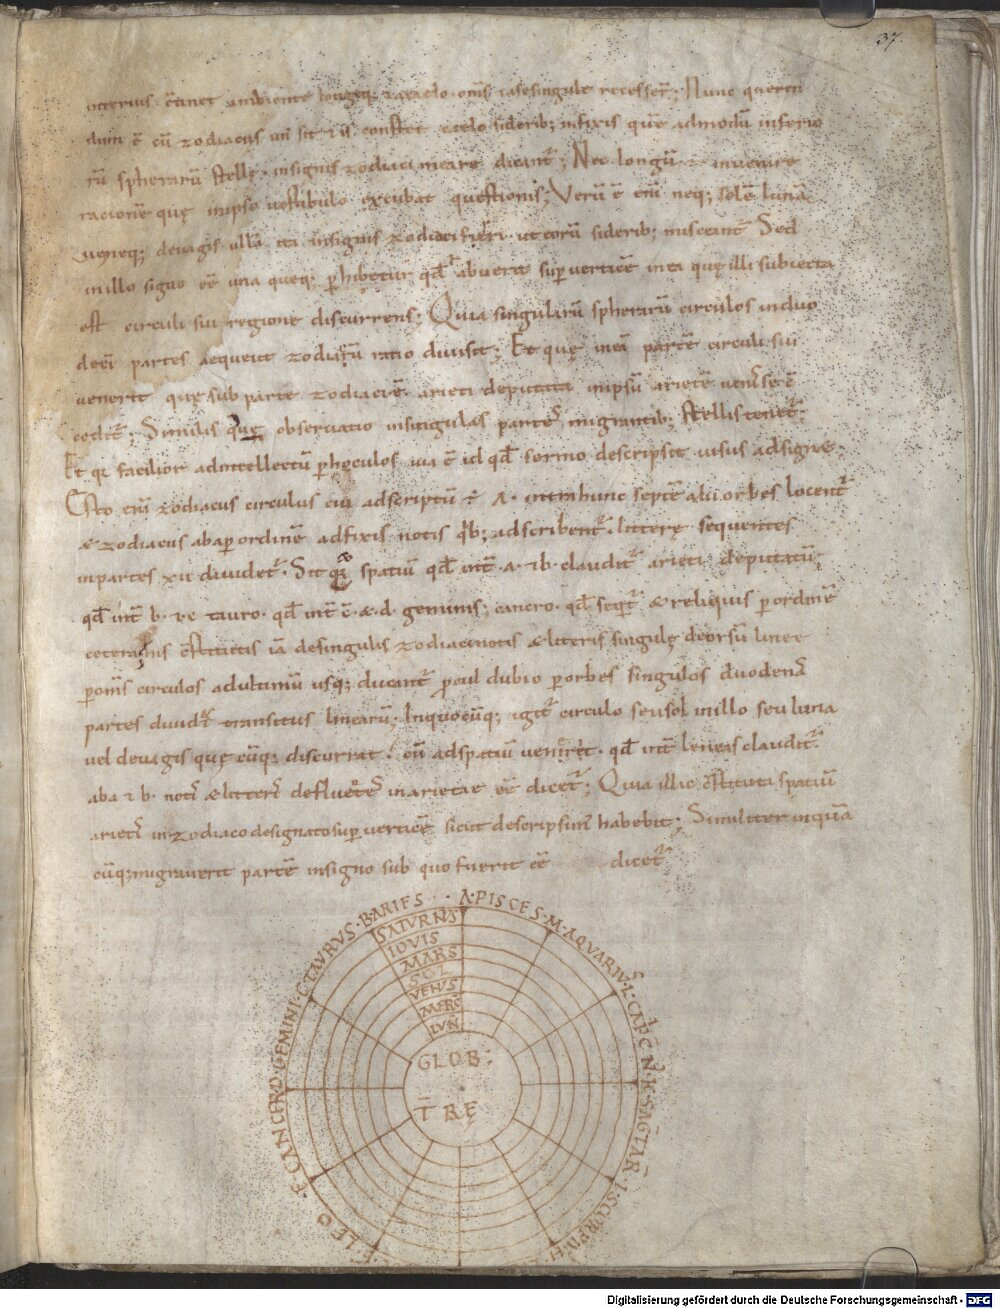 37.
interius ambiente longeque recesser̄; Nunc queren
dum ē cū zodiacus un sit & is constet caelo siderib; infixis que admodū inferio
rū spherarū stellę insignis zodiaci meare dicant̄; Nec longū ē invenire
racionē quę in ipso uestibulo excubat questionis; Verū ē enī neq; solē lunā
ueneq; deuagis ullā ita insignis zodiaci ferri ut eorū siderib; misceant̄ Sed
in illo signo eē una queq; phibetur qđ abuerit sup verticē in ea quę illi subiecta
est circuli sui regione discurrens; Quia singularū spherarū circulos in duo
deci partes aeque ut zodiacū ratio diuisit; Et quę in eā partē circuli sui
uenerit quę sub parte zodiaci ē arieti deputata in ipsū arietē venisse
cedit̄; Similis observatio in singulas partes migrantib; stellis tenet̄.
Et q facilior ad intellectū p hoculos uia ē id qđ sermo descripsit uisus adsignet.
Esto enī zodiacus circulus cui adscriptū ē A. intra hunc septē alii orbes locent̄
& zodiacus ab a p ordinē adfixis notis qb; adscribent̄ litterę sequentes
in partes xii diuidet̄. Sit q spatiū qđ int̄ a. & b. claudit̄ arieti deputatū,
qđ int̄ b. & c tauro. qđ int̄ c & d. geminis; cancro. qđ seqt̄ & reliquis p ordinē
ceteras his cstitutis iā de singulis zodiaci notis & litteris singulę deorsū lineę
p om̄s circulos ad ultimū usq; ducant̄ pcul dubio p orbes singulos duodenas
partes diuidet transitus linearū; In quocūq; igit̄ circulo seu sol in illo seu luna
uel de uagis quę cūq; discurrat. cū ad spatiū venerit. qđ int̄ lineas claudit̄.
ab a & b. notis & litteris defluentes in ariete eē dicet̄; Quia illic cstitutū spatiū
arietis in zodiaco designato sup verticē sicut descripsim habebit; Similiter in quā
cūq; migraverit partē in signo sub quo fuerit eē dicet̄
A. PISCES. M. AQVARIV. L. CAPC̄N. K. SAGITAR̄. I. SCORPIV. H
LEO
E CANCER. D. GEMINI. C. TAVRVS. B ARIES
SATVRNVS
IOVIS
MARS
SOL
VENVS
MERC
LVN̄
GLOB:
T̄RĘ
Digitalisierung gefördert durch die Deutsche Forschungsgemeinschaft - DFG